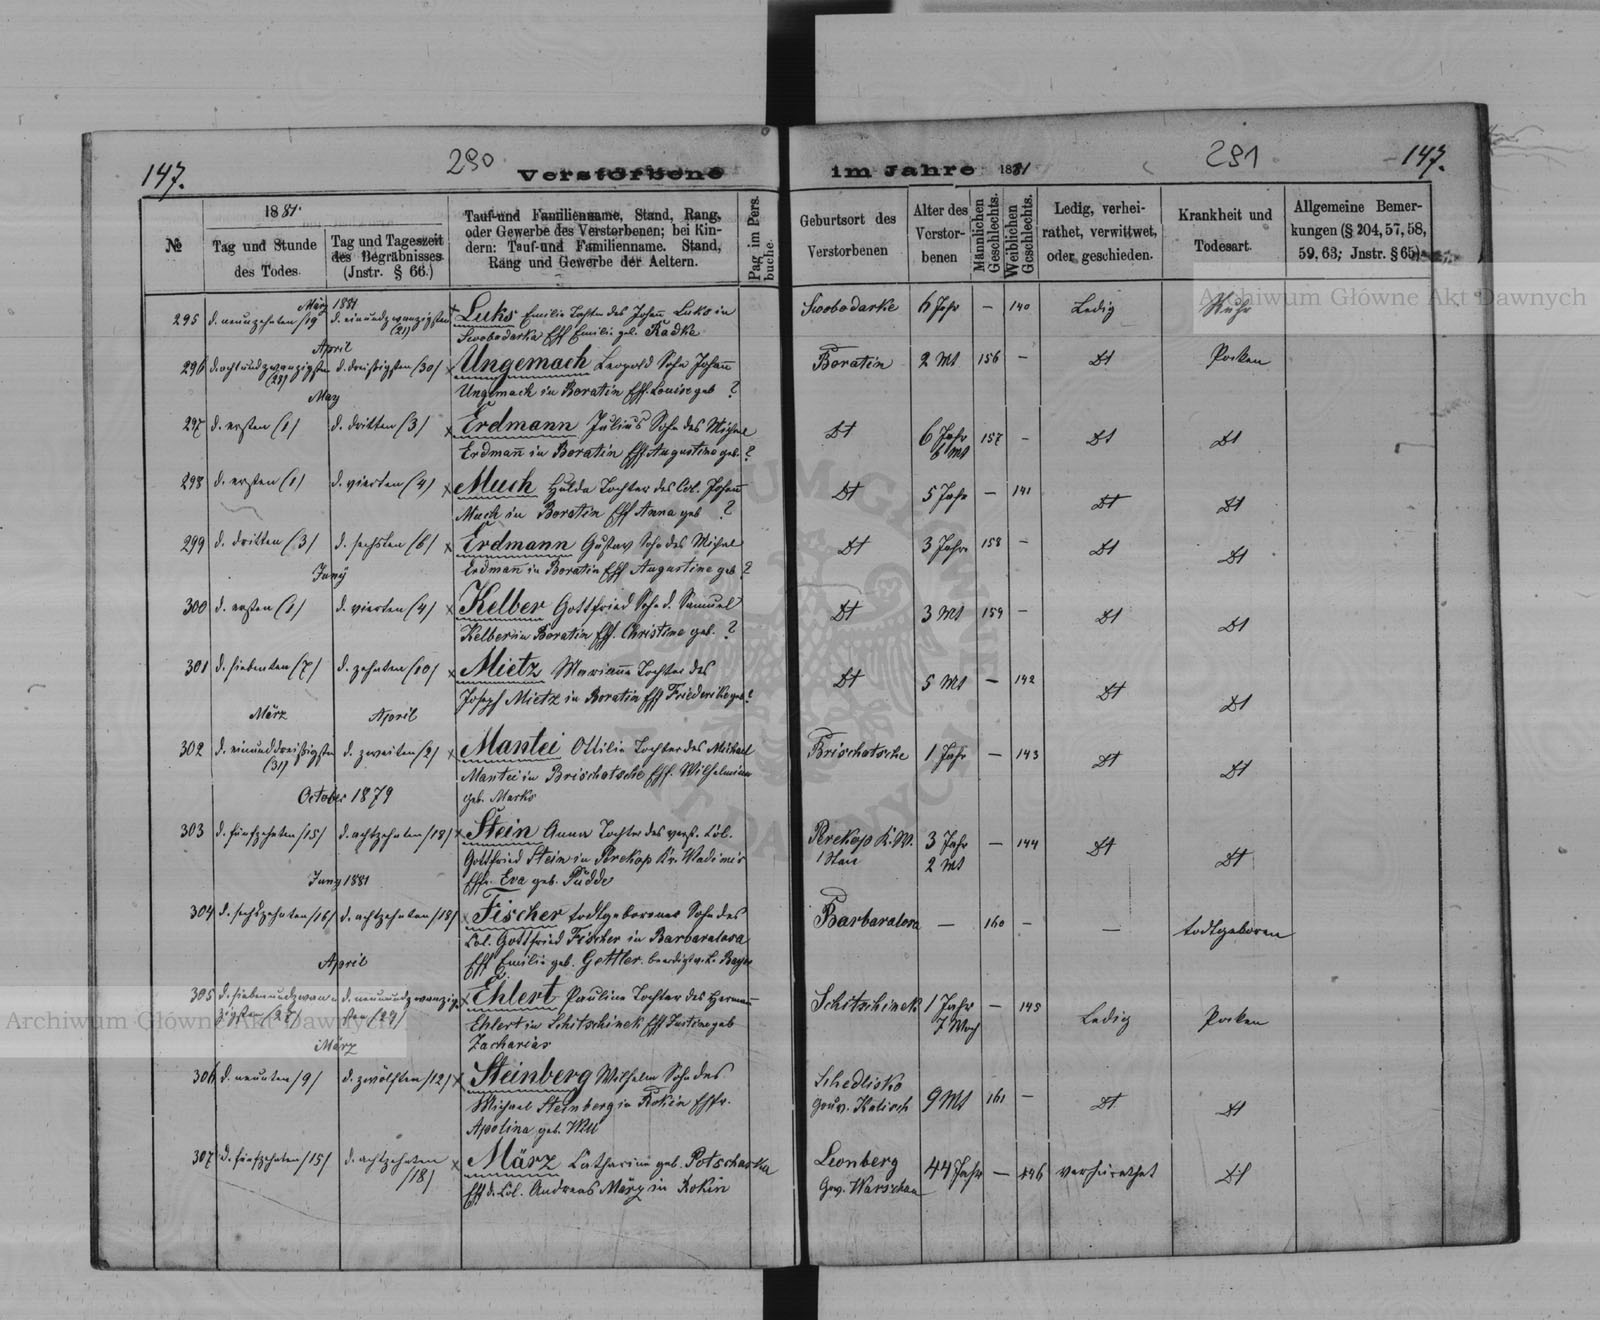 147.
290
Verstorbene
im Jahre 1881
291
147.
№
1881.
Tag und Stunde
des Todes
Tag und Tageszeit
des Begräbnisses
(Jnstr. § 66.)
Tauf-und Familienname, Stand, Rang,
oder Gewerbe des Verstorbenen; bei Kin-
dern: Tauf-und Familienname. Stand,
Rang und Gewerbe der Aeltern.
Pag im Pers.
buche.
Geburtsort des
Verstorbenen
Alter des
Verstor-
benen
Männlichen
Geschlechts.
Weiblichen
Geschlechts.
Ledig, verhei-
rathet, verwittwet,
oder geschieden.
Krankheit und
Todesart.
Allgemeine Bemer-
kungen (§ 204, 57, 58,
59, 63; Jnstr. § 65)
März 1881
295 d. neunzehnten /19 d. einundzwanzigsten (21) Luks Emilie Tochter des Johann Luks in Swobodarke 6 Jahr — 140 Ledig Ruhr
Swobodarka Eff Emilie geb. Radke
April
296 d. achtundzwanzigsten (28) d. dreißigsten (30) x Ungemach Leopold Sohn Johann Boratin 2 Mt 156 — Dt Pocken
Ungemach in Boratin Eff. Louise geb ?
May
297 d. ersten (1) d. dritten (3) x Erdmann Julius Sohn des Michael Dt 6 Jahr 6 Mt 157 — Dt Dt
Erdmann in Boratin Eff Augustine geb. ?
298 d. ersten (1) d. vierten (4) x Much Hulda Tochter des Col. Johann Dt 5 Jahr — 141 Dt Dt
Much in Boratin Eff Anna geb ?
299 d. dritten (3) d. sechsten (6) x Erdmann Gustav Sohn des Michael Dt 3 Jahr 158 — Dt Dt
Erdmann in Boratin Eff Augustine geb ?
Juny
300 d. ersten (1) d. vierten (4) x Kelber Gottfried Sohn d. Samuel Dt 3 Mt 159 — Dt Dt
Kelber in Boratin Eff. Christine geb. ?
301 d. siebenten (7) d. zehnten (10) x Mietz Marianne Tochter des Dt 5 Mt — 142 Dt Dt
Joseph Mietz in Boratin Eff Friederike geb ?
März April
302 d. einunddreißigsten (31) d. zweiten (2) x Mantei Ottilie Tochter des Michael Brischatsche 1 Jahr — 143 Dt Dt
Mantei in Brischatsche Eff. Wilhelmine
geb. Marks
October 1879
303 d. fünfzehnten /15/ d. achtzehnten /18/ x Stein Anna Tochter des verst. Col. Perekop K. W. 3 Jahr 2 Mt — 144 Dt Dt
Gottfried Stein in Perekop Kr. Wadimir
Effr. Eva geb. Püdde
Juny 1881
304 d. sechszehnten /16/ d. achtzehnten /18/ x Fischer todtgeborener Sohn des Barbaralosa — 160 — — todtgeboren
Col. Gottfried Fischer in Barbaralosa
Eff Emilie geb. Gettler.
April
305 d. siebenundzwanzigsten (27) d. neunundzwanzigsten (29) x Ehlert Pauline Tochter des Hermann Schitschinek 1 Jahr 7 Woch — 145 Ledig Pocken
Ehlert in Schitschinek Eff Justine geb
Zacharias
März
306 d. neunten /9/ d. zwölften /12/ x Steinberg Wilhelm Sohn des Schedlisko 9 Mt 161 — Dt Dt
Michael Steinberg in Rokin Effr. Gouv. Kalisch
Apolina geb. Will
307 d. fünfzehnten /15/ d. achtzehnten /18/ x März Catharina geb. Potscharka Leonberg 44 Jahr — 146 verheirathet Dt
Eff d. Col. Andreas März in Rokin Gov. Warschau
Archiwum Główne Akt Dawnych
Archiwum Główne Akt Dawnych